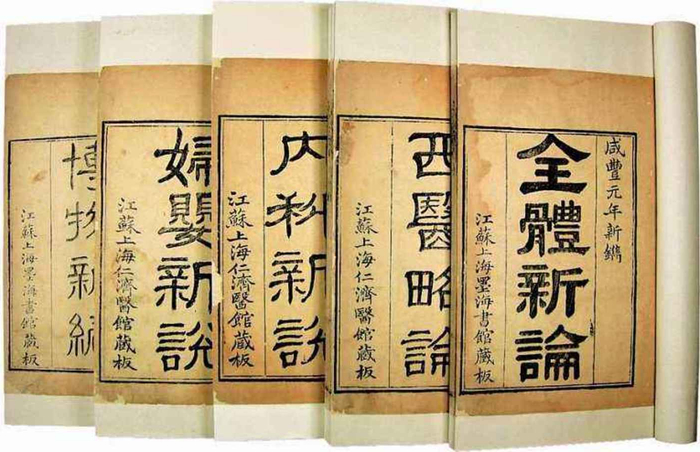 咸豐元年新鐫
全體新論
江蘇上海墨海書館藏板
西醫略論
江蘇上海仁濟醫館藏板
內科新說
江蘇上海仁濟醫館藏板
婦嬰新說
江蘇上海仁濟醫館藏板
博物新編
江蘇上海墨海書館藏板